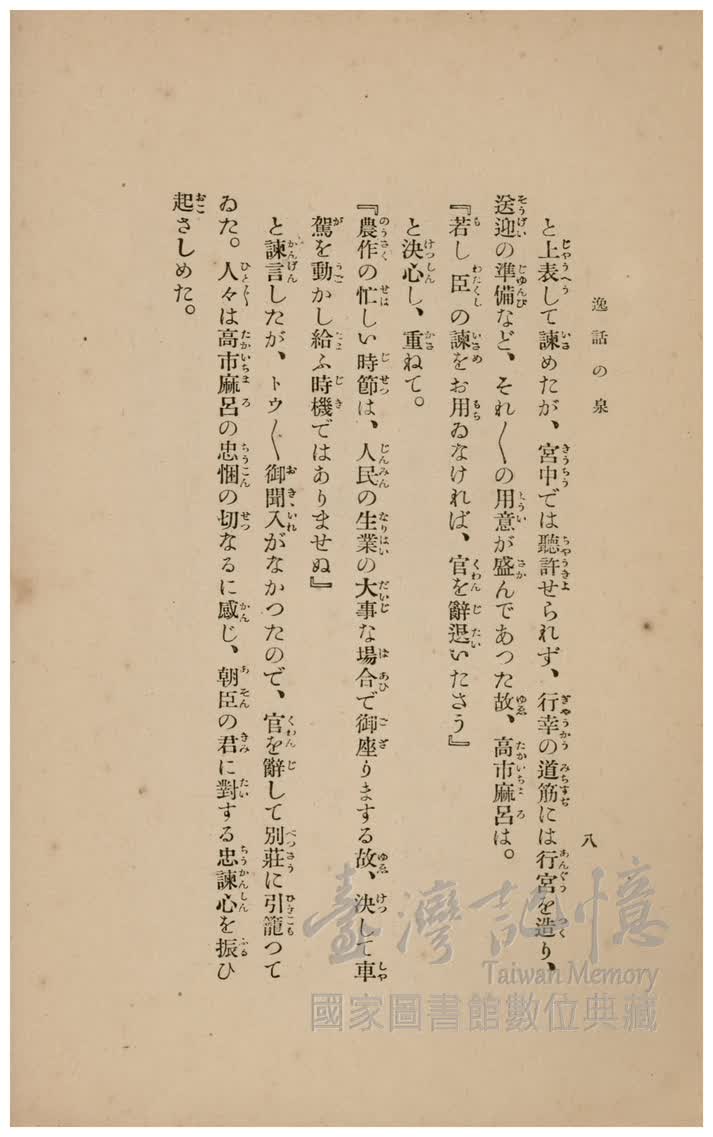 逸話の泉
八
と上表して諫めたが、宮中では聽許せられず、行幸の道筋には行宮を造り、
送迎の準備など、それ〳〵の用意が盛んであつた故、高市麻呂は。
『若し臣の諫をお用ゐなければ、官を辭退いたさう』
と決心し、重ねて。
『農作の忙しい時節は、人民の生業の大事な場合で御座りまする故、決して車
駕を動かし給ふ時機ではありませぬ』
と諫言したが、トウ〳〵御聞入がなかつたので、官を辭して別莊に引籠つて
ゐた。人々は高市麻呂の忠悃の切なるに感じ、朝臣の君に對する忠諫心を振ひ
起さしめた。
臺灣記憶
Taiwan Memory
國家圖書館數位典藏